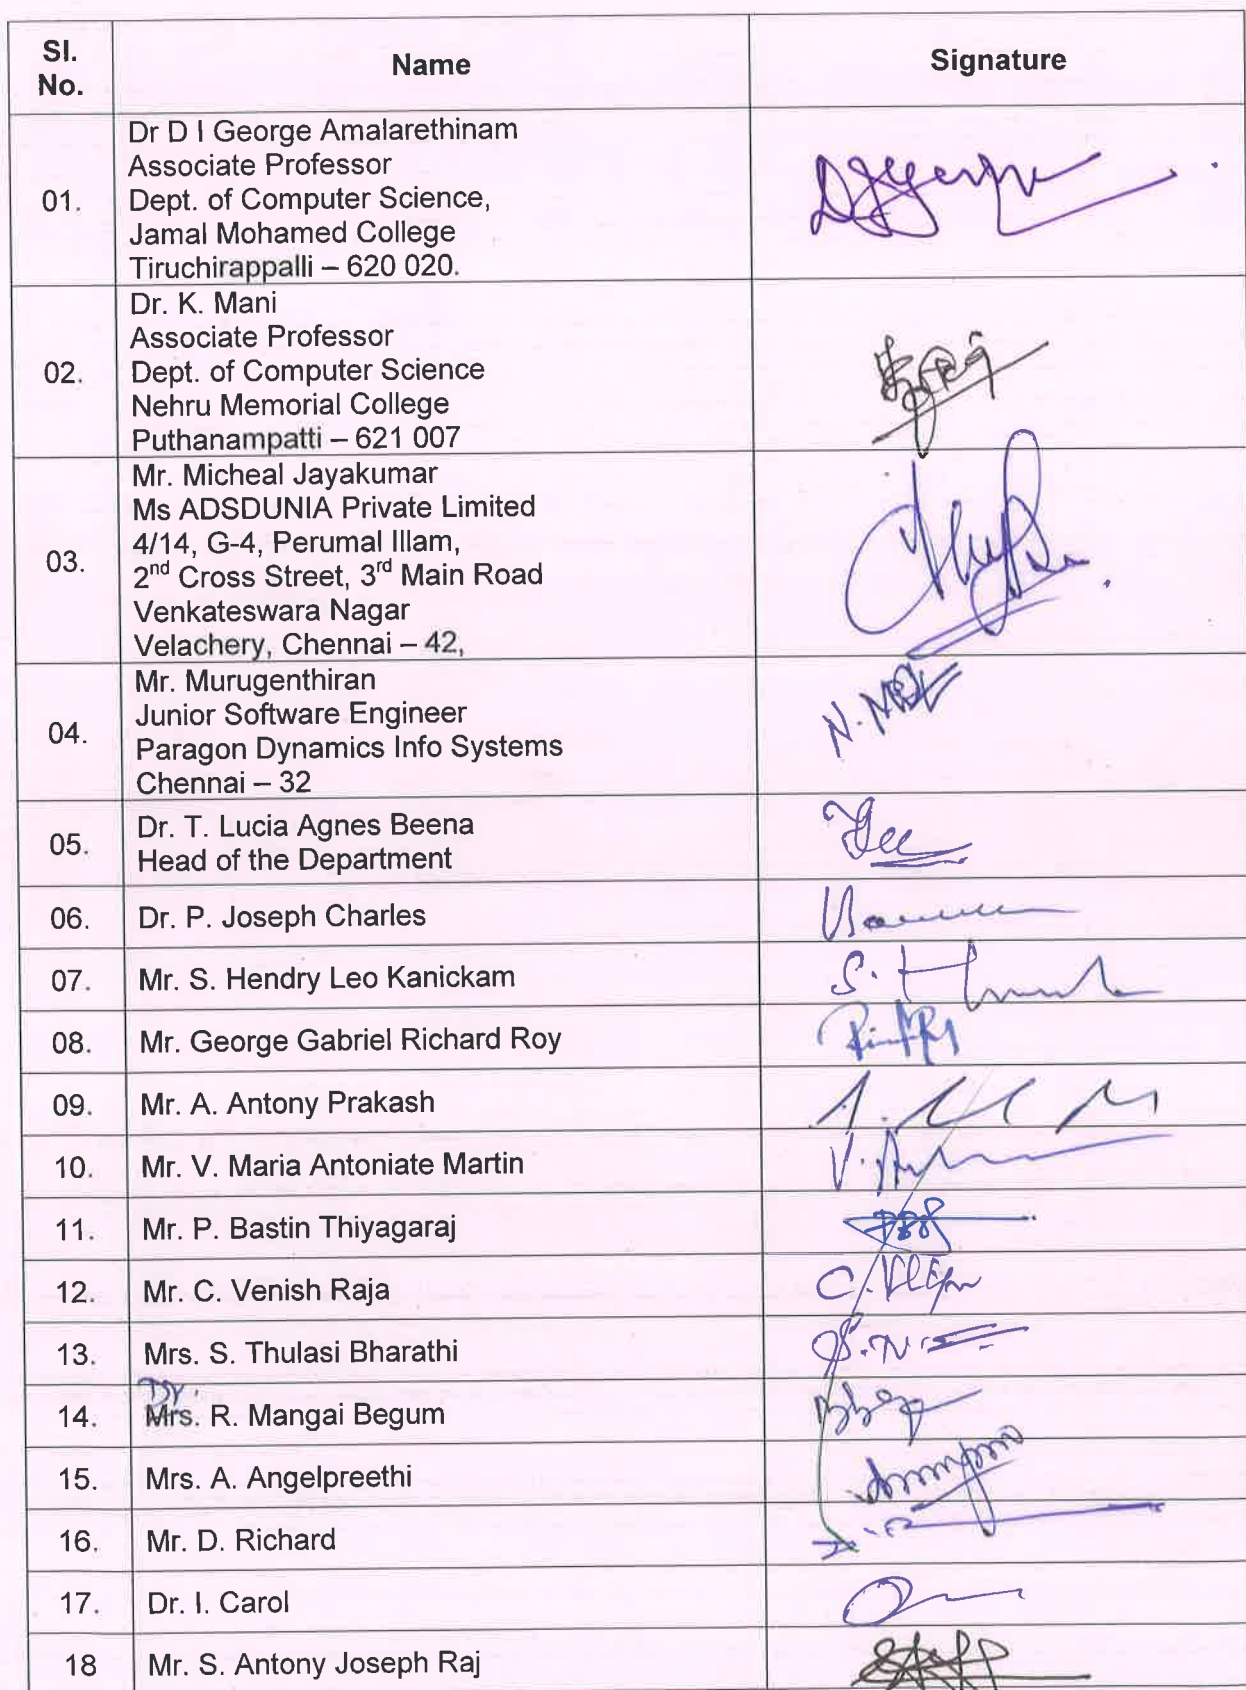 Sl. No. Name Signature
Dr D I George Amalarethinam
Associate Professor
01. Dept. of Computer Science,
Jamal Mohamed College
Tiruchirappalli – 620 020.
Dr. K. Mani
Associate Professor
02. Dept. of Computer Science
Nehru Memorial College
Puthanampatti – 621 007
Mr. Micheal Jayakumar
Ms ADSDUNIA Private Limited
4/14, G-4, Perumal Illam,
03. 2nd Cross Street, 3rd Main Road
Venkateswara Nagar
Velachery, Chennai – 42,
Mr. Murugenthiran
Junior Software Engineer
04. Paragon Dynamics Info Systems
Chennai – 32
05. Dr. T. Lucia Agnes Beena
Head of the Department
06. Dr. P. Joseph Charles
07. Mr. S. Hendry Leo Kanickam
08. Mr. George Gabriel Richard Roy
09. Mr. A. Antony Prakash
10. Mr. V. Maria Antoniate Martin
11. Mr. P. Bastin Thiyagaraj
12. Mr. C. Venish Raja
13. Mrs. S. Thulasi Bharathi
Dr.
14. Mrs. R. Mangai Begum
15. Mrs. A. Angelpreethi
16. Mr. D. Richard
17. Dr. I. Carol
18 Mr. S. Antony Joseph Raj